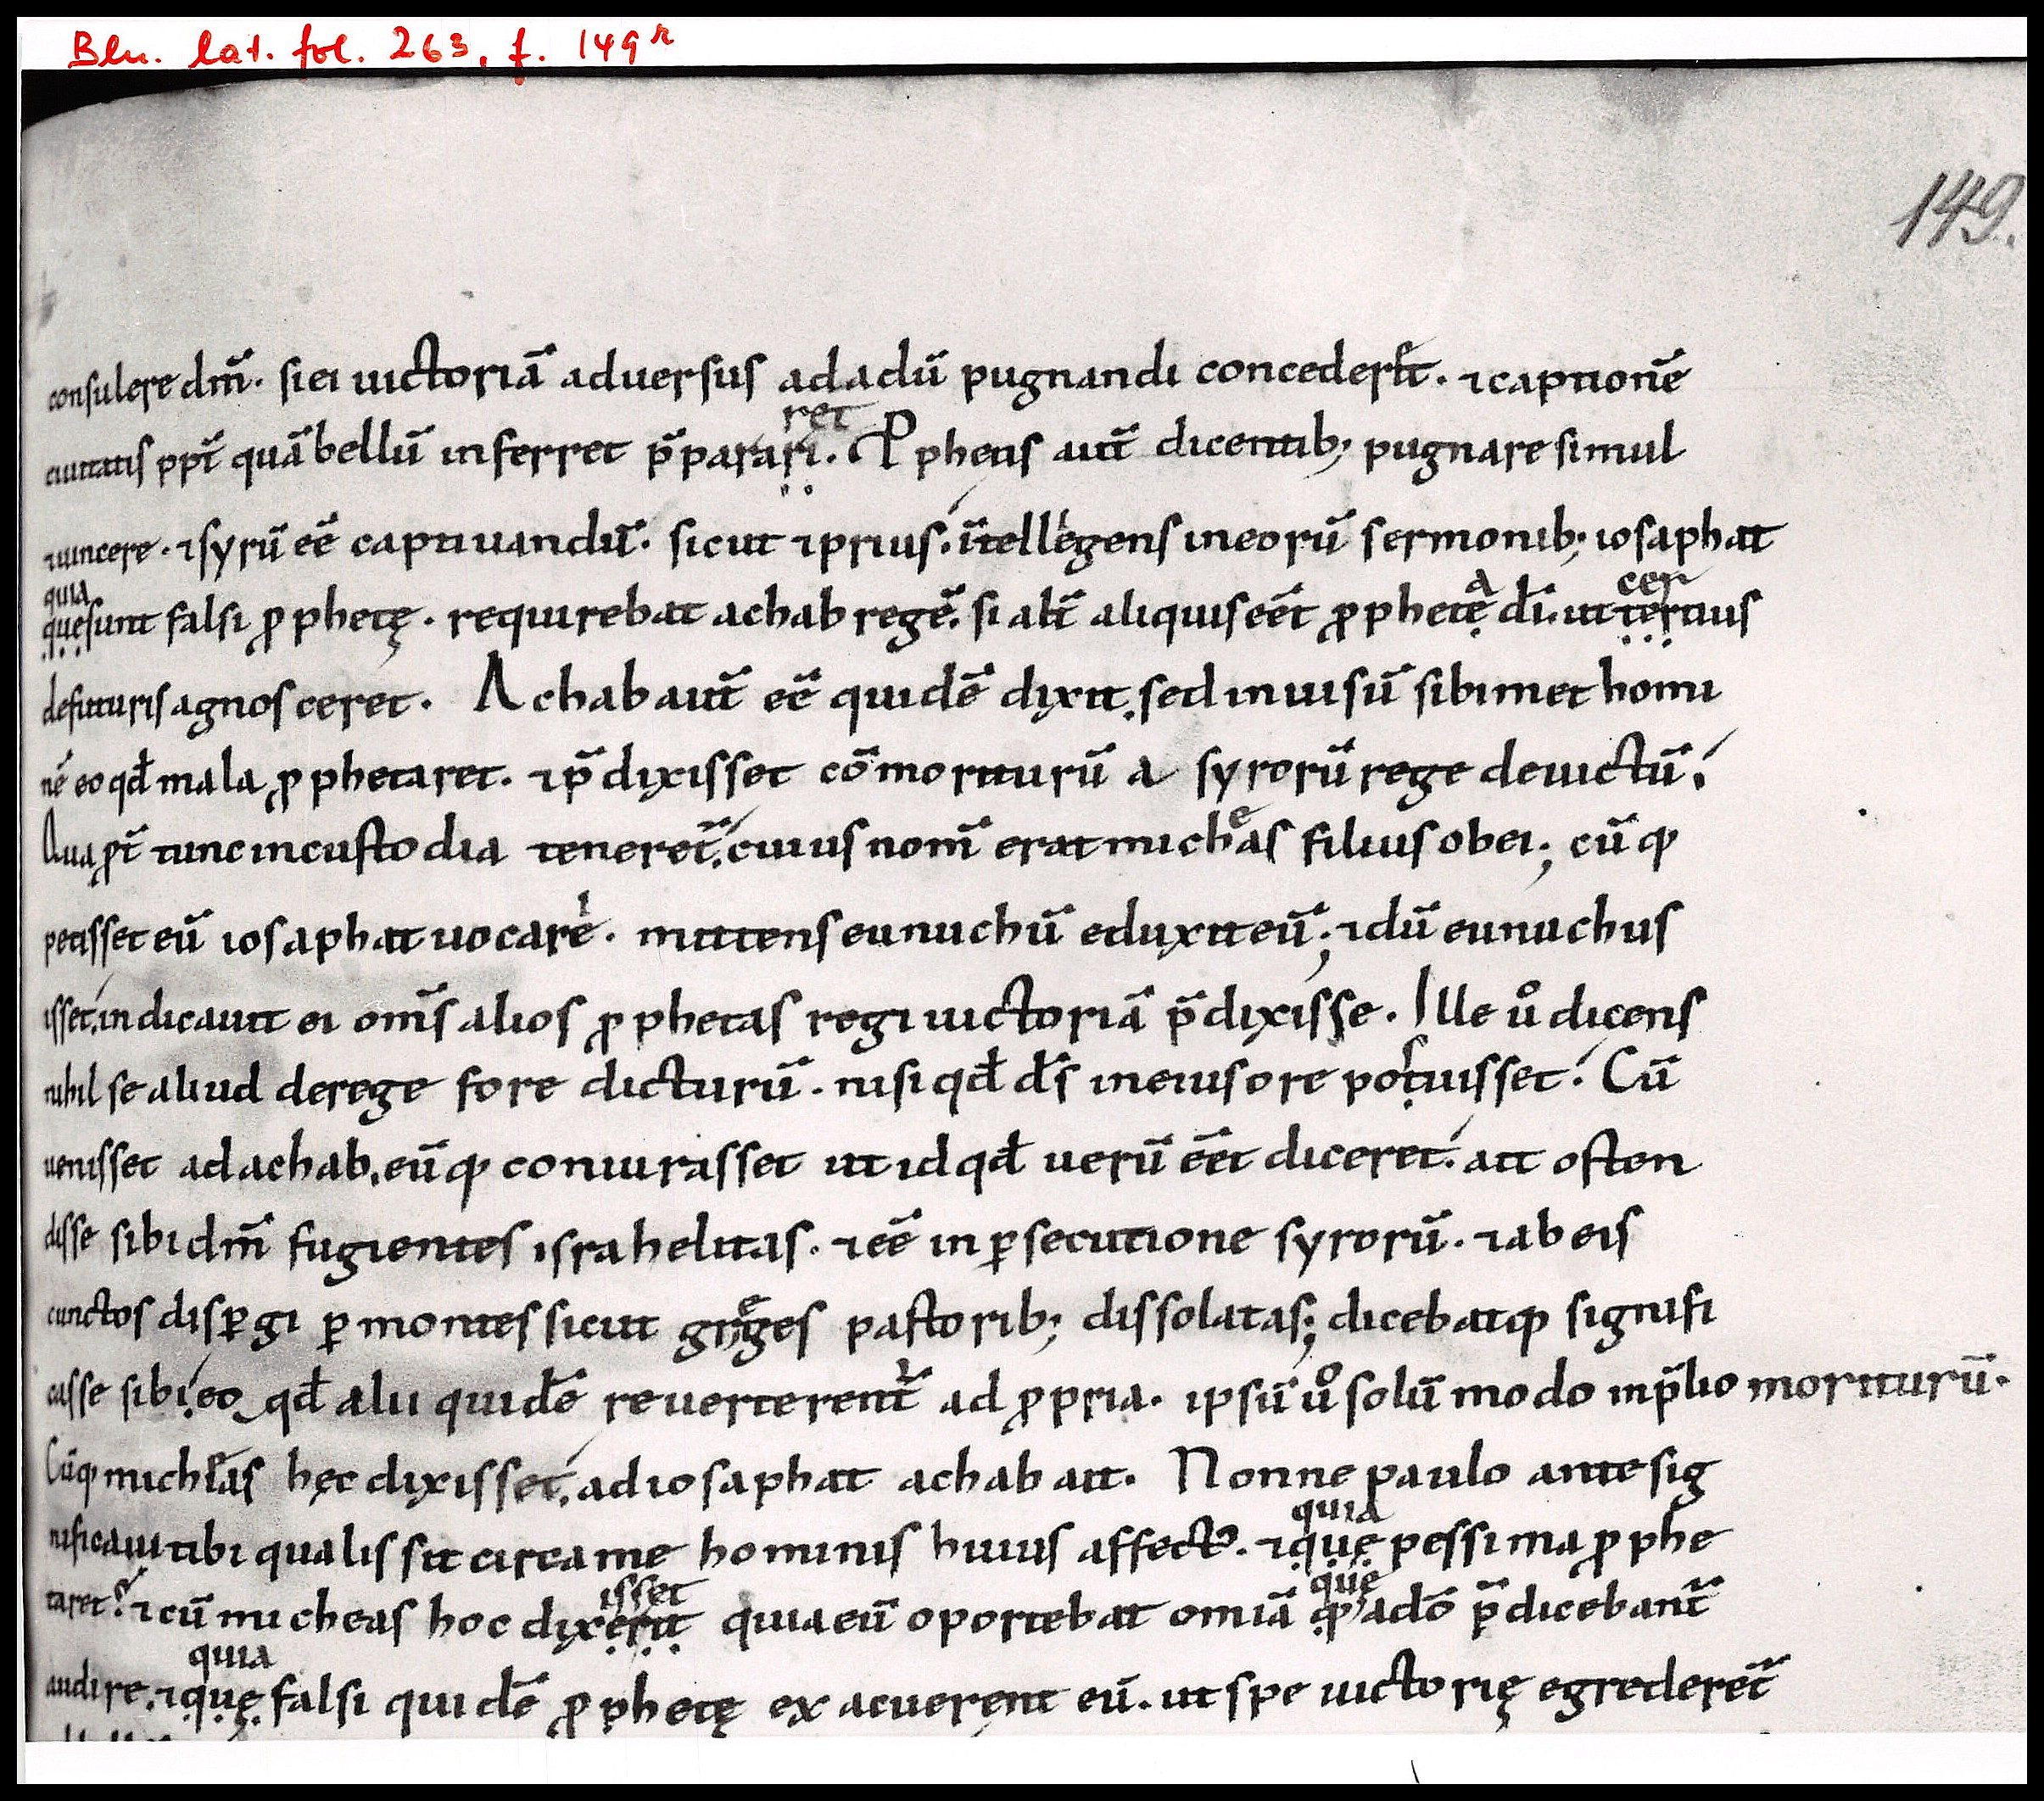 Bln. lat. fol. 263, f. 149r
149.
consulere dm̄. si ei uictoriā aduersus adadū pugnandi concederit. ⁊ captionē
ret
ciuitatis ppt̄ quā bellū inferret p̄parari. Pphetis aut̄ dicentib; pugnare simul
⁊ uincere. ⁊ syrū eē captiuandū. sicut ⁊ prius. ītellegens in eorū sermonib; iosaphat
quia a cer
quę sunt falsi ꝓphetę. requirebat achab regē. si alt̄ aliquis eēt ꝓphetę dī. ut tertius
de futuris agnosceret. Achab aut̄ eē quidē dixit. sed inuisū sibimet homi
nē eo qđ mala ꝓphetaret. ⁊ p̄dixisset cōmoriturū a syrorū rege deuictū.
Quaꝓt̄ tunc in custodia teneret̄. cuius nom̄ erat micheas filius obei; cūqꝫ
petisset eū iosaphat uocari. mittens eunuchū eduxit eū; ⁊ dū eunuchus
isset. indicauit ei om̄s alios ꝓphetas regi uictoriā p̄dixisse. Ille uº dicens
nihil se aliud de rege fore dicturū. nisi qđ d̄s in eius ore posuisset. Cū
uenisset ad achab. eūqꝫ coniurasset ut id qđ uerū eēt diceret. ait osten
disse sibi dm̄ fugientes israhelitas. ⁊ eē in ꝑsecutione syrorū. ⁊ ab eis
cunctos disꝑgi ꝑ montes sicut greges pastorib; dissolatas; dicebatqꝫ signifi
casse sibi. eo qđ alii quidē reuerterent̄ ad ꝓpria. ipsū uº solū modo in p̄lio moriturū.
Cūqꝫ micheas hęc dixisset. ad iosaphat achab ait. Nonne paulo ante sig
quia
nificaui tibi qualis sit circa me hominis huius affectꝰ. ⁊ quę pessima ꝓphe
isset quę
taret? ⁊ cū micheas hoc dixerit quia eū oportebat omīa qꝫ a dō p̄dicebant̄
quia
audire. ⁊ quę falsi quidē ꝓphetę exacuerent eū. ut spe uictorię egrederet̄